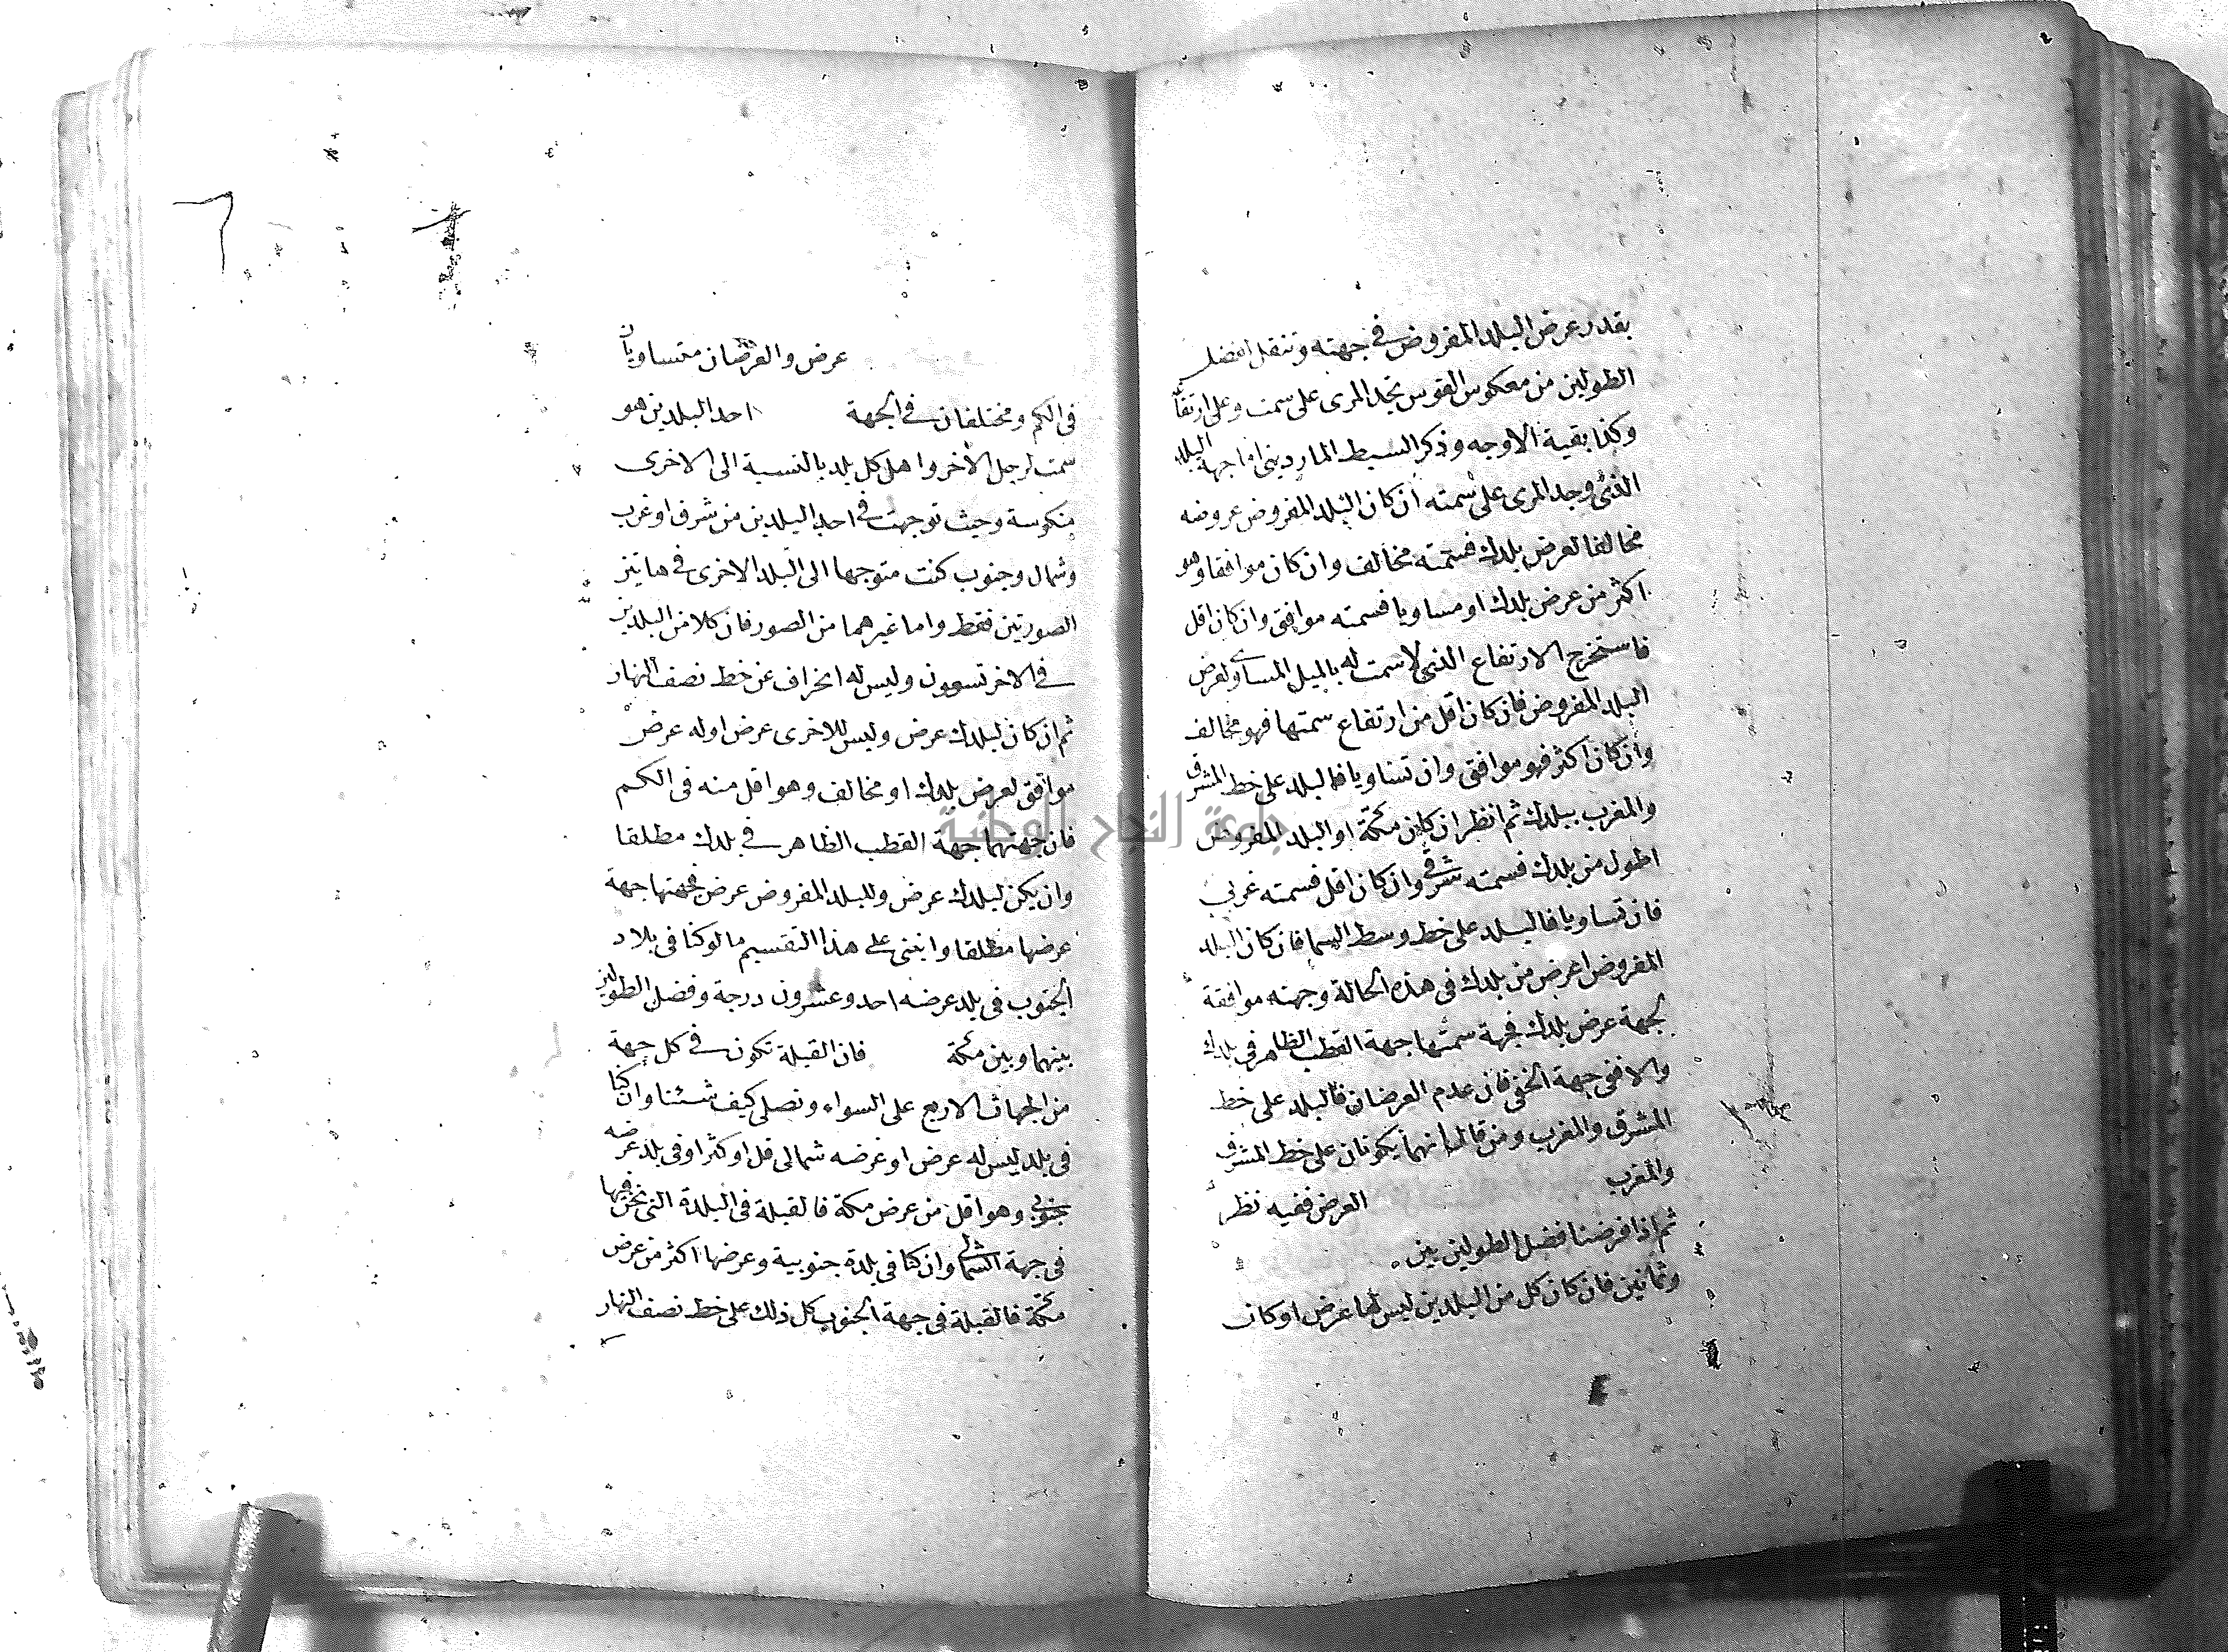 بقدر عرض البلد المفروض في جهته وتنقل افضل
الطولين من معكوس القوس تجد المرى على سمت وعلى ارتفا
وكذا بقية الاوجه وذكر السبط المارديني اما جهة البلد
الذي وجد المرى على سمته ان كان البلد المفروض عروضه
مخالفا لعرض بلدك فسمته مخالف وان كان موافقا وهو
اكثر من عرض بلدك او مساويا فسمته موافق وان كان اقل
فاستخرج الارتفاع الذي لا سمت له بالميل المساوي لعرض
البلد المفروض فان كان اقل من ارتفاع سمتها فهو مخالف
وان كان اكثر فهو موافق وان تساويا فالبلد على خط المشرق
والمغرب ببلدك ثم انظر ان كان مكة او البلد المفروض
اطول من بلدك فسمته شرقي وان كان اقل فسمته غربي
فان تساويا فالبلد على خط وسط السما فان كان البلد
المفروض اعرض من بلدك في هذه الحالة وجهته موافقة
لجهة عرض بلدك فجهة سمتها جهة القطب الظاهر في بلدك
والا ففي جهة الخفي فان عدم العرضان فالبلد على خط
المشرق والمغرب ومن قال انهما يكونان على خط المشرق
والمغرب العرض ففيه نظر
ثم اذا فرضنا فضل الطولين بين
وثمانين فان كان كل من البلدين ليس لها عرض او كان
عرض والعرضان متساويان
في الكم ومختلفان في الجهة احد البلدين هو
سمت لرجل الاخر واهل كل بلد بالنسبة الى الاخرى
منكوسة وحيث توجهت في احد البلدين من شرق او غرب
وشمال وجنوب كنت متوجها الى البلد الاخرى في هاتين
الصورتين فقط واما غيرهما من الصور فان كلا من البلدين
في الاخر تسعون وليس له انحراف عن خط نصف النهار
ثم ان كان لبلدك عرض وليس للاخرى عرض اوله عرض
موافق لعرض بلدك او مخالف وهو اقل منه في الكم
فان جهتهما جهة القطب الظاهر في بلدك مطلقا
وان يكن لبلدك عرض وللبلد المفروض عرض فجهتها جهة
عرضها مطلقا وانبنى على هذا التقسيم ما لو كنا في بلاد
الجنوب في بلد عرضه احد وعشرون درجة وفضل الطولين
بينهما وبين مكة فان القبلة تكون في كل جهة
من الجهات الاربع على السواء ونصلى كيف شئنا وان كنا
في بلد ليس له عرض او عرضه شمالى قل او كثر او في بلد عرضه
جنوبي وهو اقل من عرض مكة فالقبلة في البلدة التي نحن فيها
في جهة الشمال وان كنا في بلدة جنوبية وعرضها اكثر من عرض
مكة فالقبلة في جهة الجنوب كل ذلك على خط نصف النهار
جامعة النجاح الوطنية